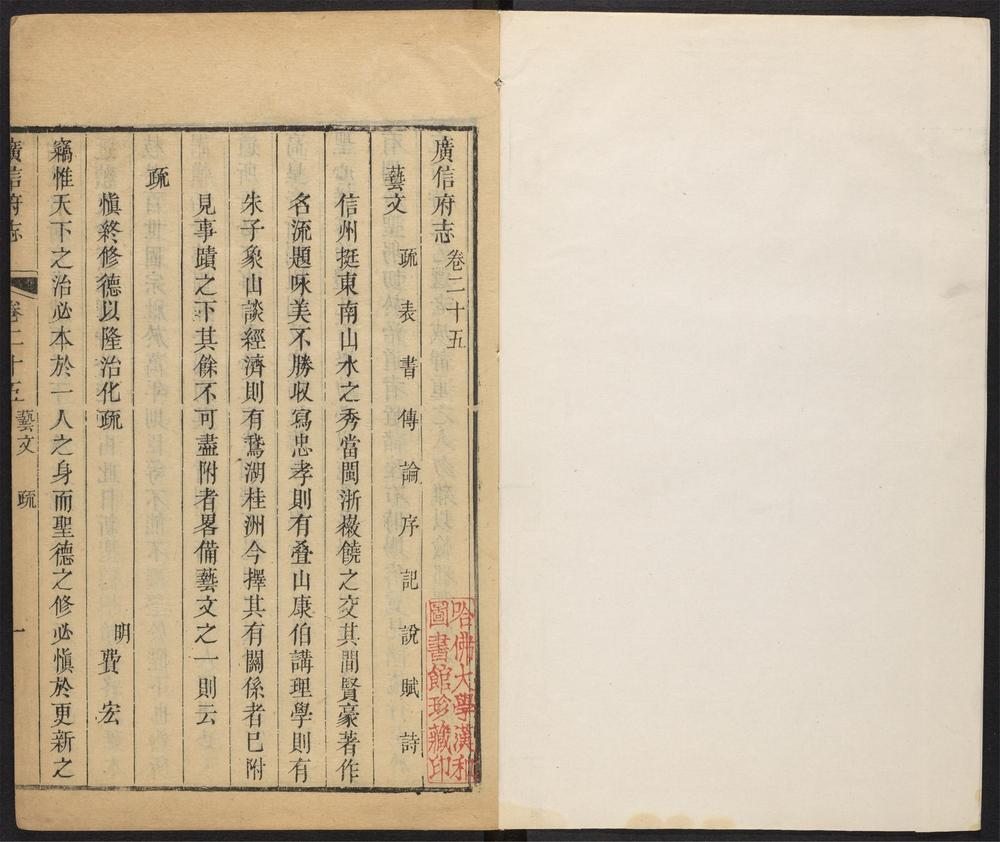 廣信府志 卷二十五
藝文 疏 表 書 傳 論 序 記 說 賦 詩
信州挺東南山水之秀當閩浙徽饒之交其間賢豪著作
名流題咏美不勝收寫忠孝則有叠山康伯講理學則有
朱子象山談經濟則有鵞湖桂洲今擇其有關係者已附
見事蹟之下其餘不可盡附者畧備藝文之一則云
疏
慎終修德以隆治化疏 明 費宏
竊惟天下之治必本於一人之身而聖德之修必慎於更新之
廣信府志 卷二十五 藝文 疏 一
哈佛大學漢和
圖書館珍藏印